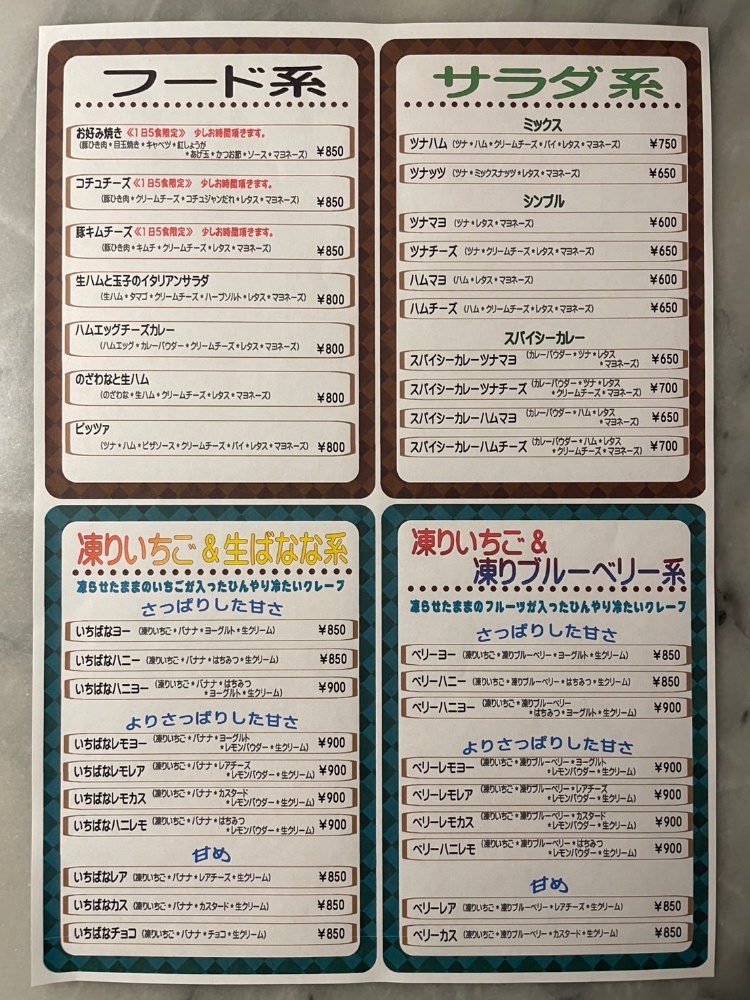 フード系
お好み焼き 《1日5食限定》 少しお時間頂きます。
(豚ひき肉＊目玉焼き＊キャベツ＊紅しょうが
＊あげ玉＊かつお節＊ソース＊マヨネーズ) ¥850
コチュチーズ 《1日5食限定》 少しお時間頂きます。
(豚ひき肉＊クリームチーズ＊コチュジャンだれ＊レタス＊マヨネーズ) ¥850
豚キムチーズ 《1日5食限定》 少しお時間頂きます。
(豚ひき肉＊キムチ＊クリームチーズ＊レタス＊マヨネーズ) ¥850
生ハムと玉子のイタリアンサラダ
(生ハム＊タマゴ＊クリームチーズ＊ハーブソルト＊レタス＊マヨネーズ) ¥800
ハムエッグチーズカレー
(ハムエッグ＊カレーパウダー＊クリームチーズ＊レタス＊マヨネーズ) ¥800
のざわなと生ハム
(のざわな＊生ハム＊クリームチーズ＊レタス＊マヨネーズ) ¥800
ピッツァ
(ツナ＊ハム＊ピザソース＊クリームチーズ＊パイ＊レタス＊マヨネーズ) ¥800
サラダ系
ミックス
ツナハム (ツナ＊ハム＊クリームチーズ＊パイ＊レタス＊マヨネーズ) ¥750
ツナッツ (ツナ＊ミックスナッツ＊レタス＊マヨネーズ) ¥650
シンプル
ツナマヨ (ツナ＊レタス＊マヨネーズ) ¥600
ツナチーズ (ツナ＊クリームチーズ＊レタス＊マヨネーズ) ¥650
ハムマヨ (ハム＊レタス＊マヨネーズ) ¥600
ハムチーズ (ハム＊クリームチーズ＊レタス＊マヨネーズ) ¥650
スパイシーカレー
スパイシーカレーツナマヨ (カレーパウダー＊ツナ＊レタス
＊マヨネーズ) ¥650
スパイシーカレーツナチーズ (カレーパウダー＊ツナ＊レタス
＊クリームチーズ＊マヨネーズ) ¥700
スパイシーカレーハムマヨ (カレーパウダー＊ハム＊レタス
＊マヨネーズ) ¥650
スパイシーカレーハムチーズ (カレーパウダー＊ハム＊レタス
＊クリームチーズ＊マヨネーズ) ¥700
凍りいちご＆生ばなな系
凍らせたままのいちごが入ったひんやり冷たいクレープ
さっぱりした甘さ
いちばなヨー (凍りいちご＊バナナ＊ヨーグルト＊生クリーム) ¥850
いちばなハニー (凍りいちご＊バナナ＊はちみつ＊生クリーム) ¥850
いちばなハニヨー (凍りいちご＊バナナ＊はちみつ
＊ヨーグルト＊生クリーム) ¥900
よりさっぱりした甘さ
いちばなレモヨー (凍りいちご＊バナナ＊ヨーグルト
＊レモンパウダー＊生クリーム) ¥900
いちばなレモレア (凍りいちご＊バナナ＊レアチーズ
＊レモンパウダー＊生クリーム) ¥900
いちばなレモカス (凍りいちご＊バナナ＊カスタード
＊レモンパウダー＊生クリーム) ¥900
いちばなハニレモ (凍りいちご＊バナナ＊はちみつ
＊レモンパウダー＊生クリーム) ¥900
甘め
いちばなレア (凍りいちご＊バナナ＊レアチーズ＊生クリーム) ¥850
いちばなカス (凍りいちご＊バナナ＊カスタード＊生クリーム) ¥850
いちばなチョコ (凍りいちご＊バナナ＊チョコ＊生クリーム) ¥850
凍りいちご＆
凍りブルーベリー系
凍らせたままのフルーツが入ったひんやり冷たいクレープ
さっぱりした甘さ
ベリーヨー (凍りいちご＊凍りブルーベリー＊ヨーグルト＊生クリーム) ¥850
ベリーハニー (凍りいちご＊凍りブルーベリー＊はちみつ＊生クリーム) ¥850
ベリーハニヨー (凍りいちご＊凍りブルーベリー
＊はちみつ＊ヨーグルト＊生クリーム) ¥900
よりさっぱりした甘さ
ベリーレモヨー (凍りいちご＊凍りブルーベリー＊ヨーグルト
＊レモンパウダー＊生クリーム) ¥900
ベリーレモレア (凍りいちご＊凍りブルーベリー＊レアチーズ
＊レモンパウダー＊生クリーム) ¥900
ベリーレモカス (凍りいちご＊凍りブルーベリー＊カスタード
＊レモンパウダー＊生クリーム) ¥900
ベリーハニレモ (凍りいちご＊凍りブルーベリー＊はちみつ
＊レモンパウダー＊生クリーム) ¥900
甘め
ベリーレア (凍りいちご＊凍りブルーベリー＊レアチーズ＊生クリーム) ¥850
ベリーカス (凍りいちご＊凍りブルーベリー＊カスタード＊生クリーム) ¥850